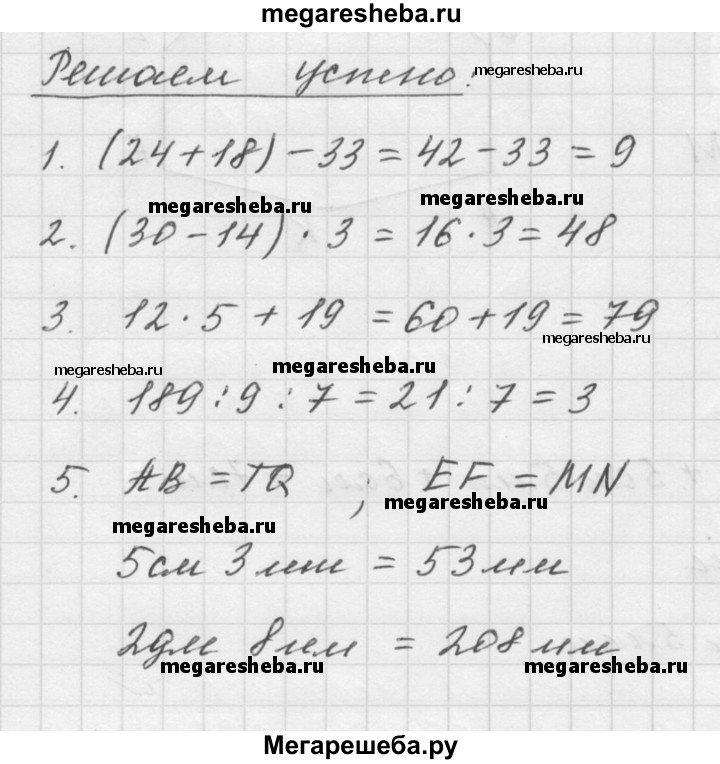 megaresheba.ru
Решаем устно: megaresheba.ru
1. (24+18)-33=42-33=9
megaresheba.ru megaresheba.ru
2. (30-14)·3=16·3=48
3. 12·5+19=60+19=79
megaresheba.ru
megaresheba.ru megaresheba.ru
4. 189:9:7=21:7=3
5. AB=TQ; EF=MN
megaresheba.ru
megaresheba.ru
5см 3мм=53мм
2дм 8мм=208мм
megaresheba.ru megaresheba.ru
Мегарешеба.ру